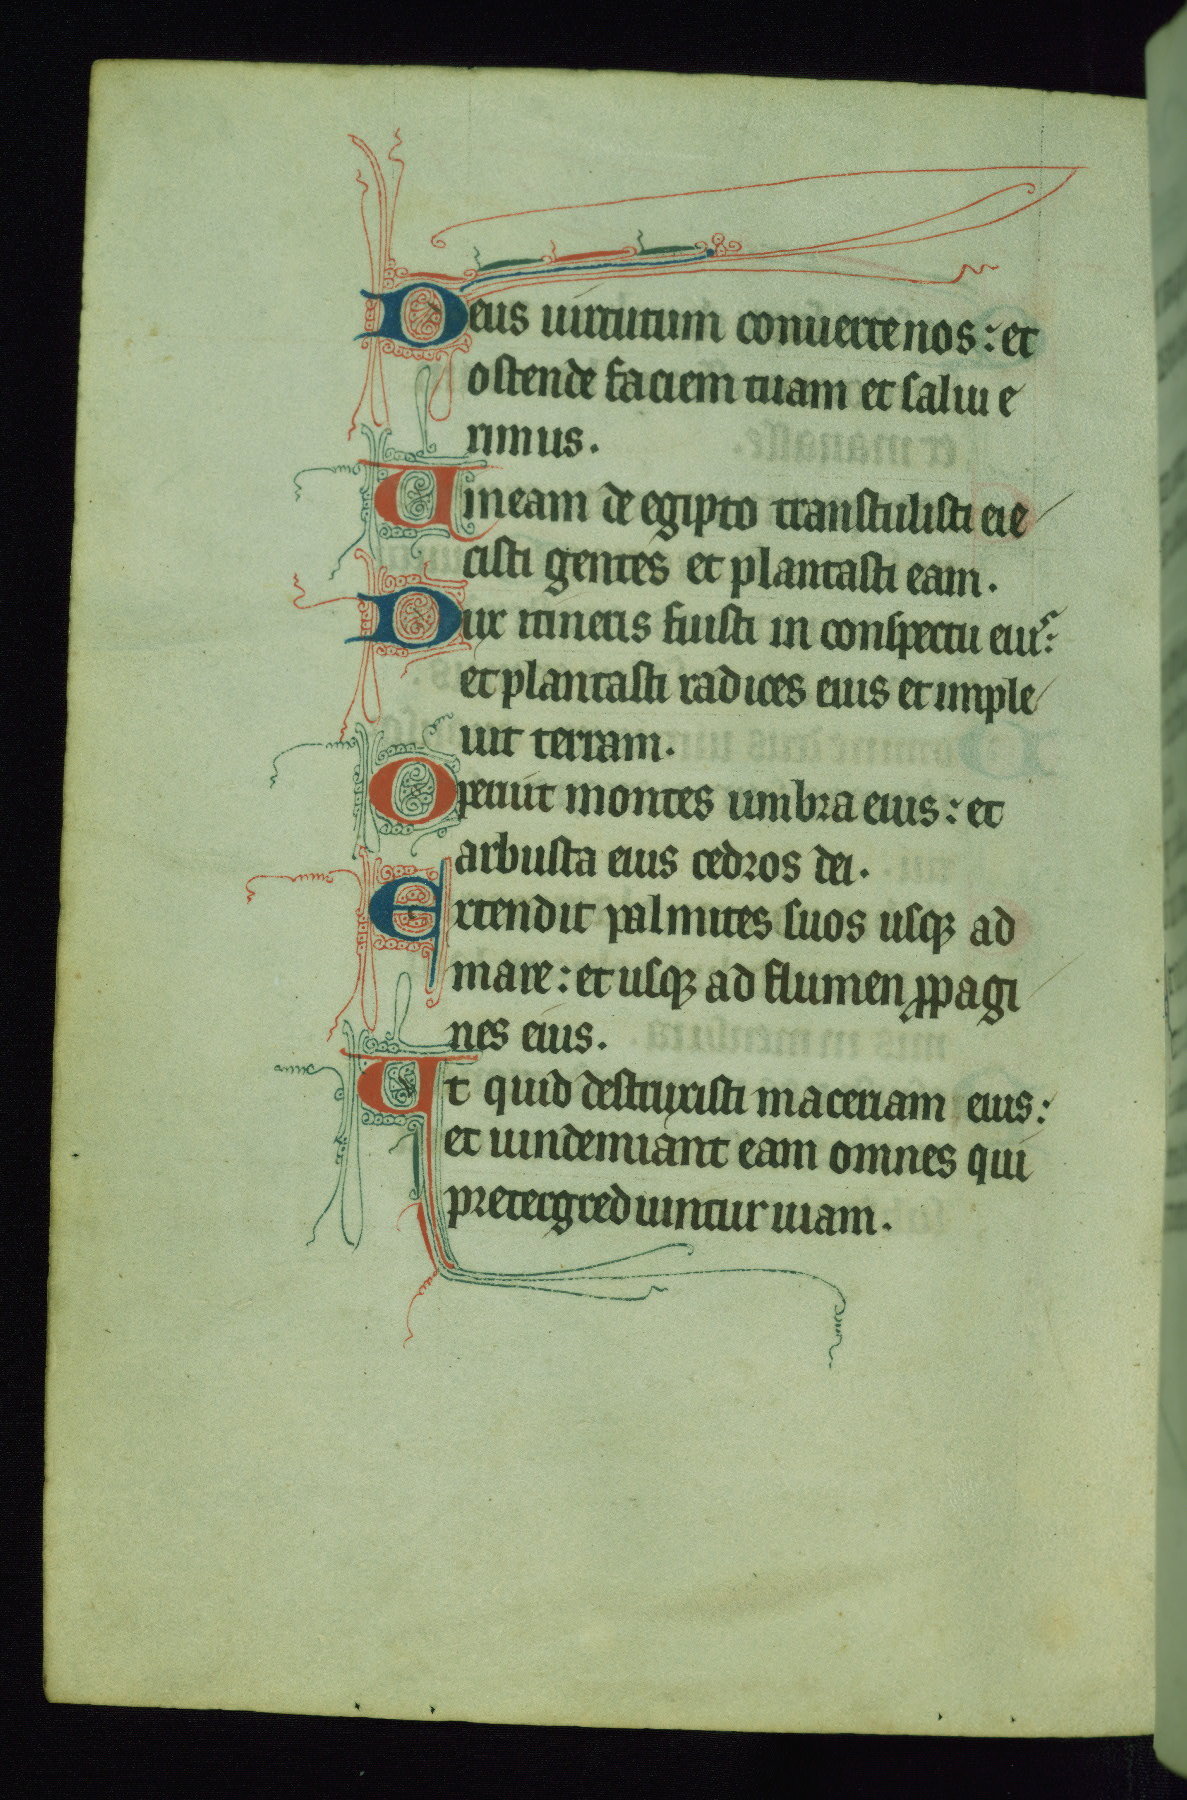 Deus uirtutum conuerte nos: et
ostende faciem tuam et salui e
rimus.
Uineam de egipto transtulisti eie
cisti gentes et plantasti eam.
Dux itineris fuisti in conspectu eius:
et plantasti radices eius et imple
uit terram.
Operuit montes umbra eius: et
arbusta eius cedros dei.
Extendit palmites suos usqꝫ ad
mare: et usqꝫ ad flumen ꝓpagi
nes eius.
Ut quid destruxisti maceriam eius:
et uindemiant eam omnes qui
pretergrediuntur uiam.